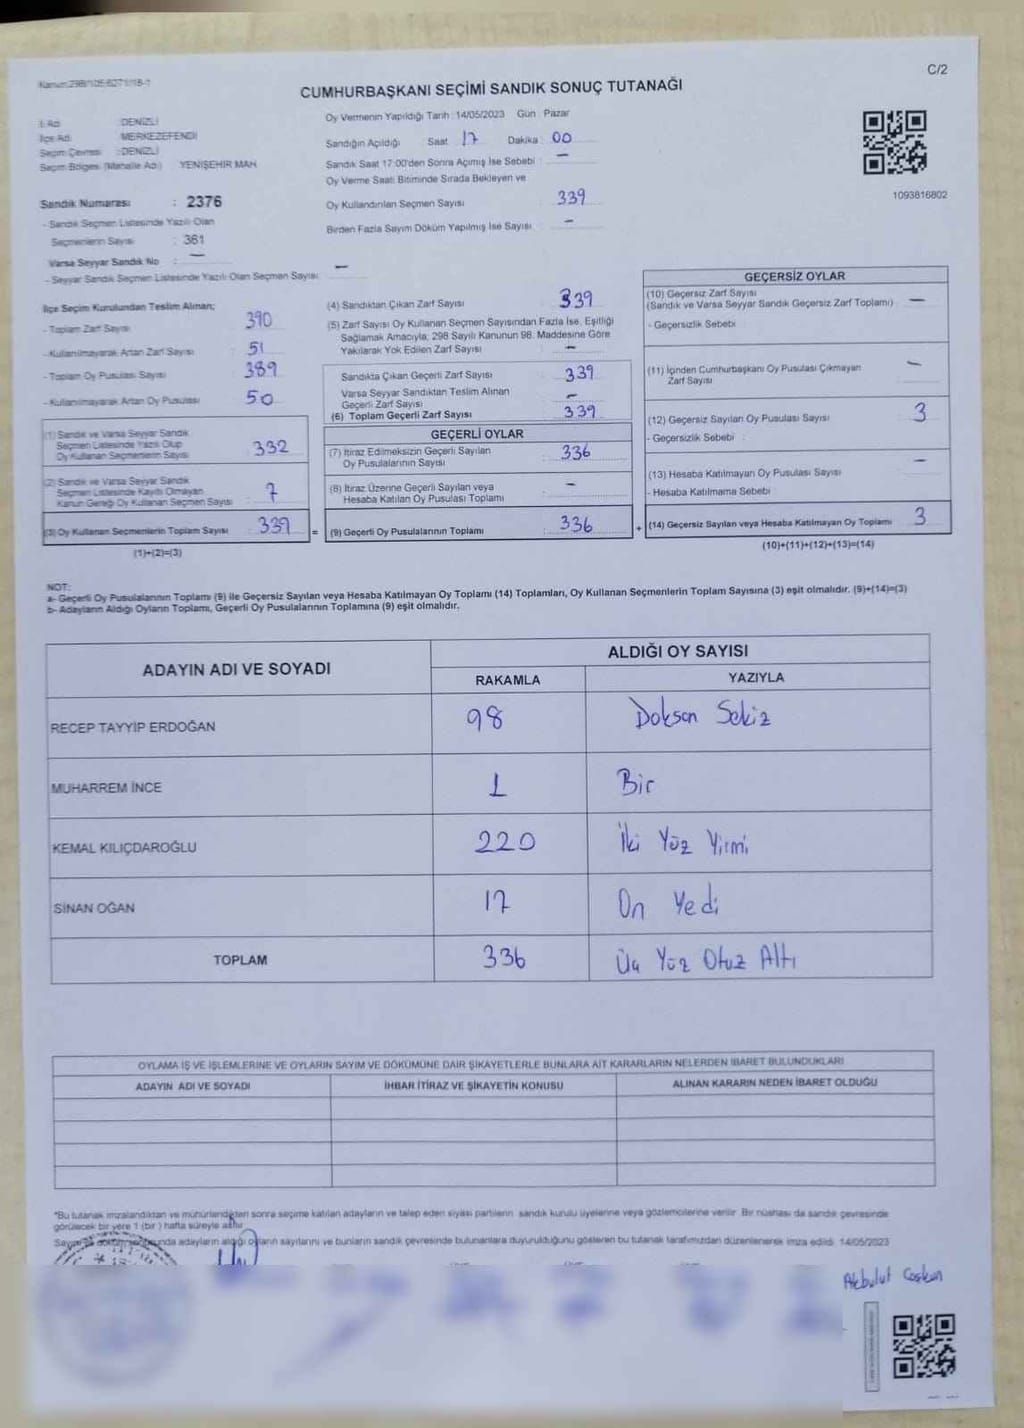 C/2
CUMHURBAŞKANI SEÇİMİ SANDIK SONUÇ TUTANAĞI
İl Adı :DENİZLİ
İlçe Adı :MERKEZEFENDİ
Seçim Çevresi :DENİZLİ
Seçim Bölgesi (Mahalle Adı) YENİŞEHİR MAH
Sandık Numarası : 2376
- Sandık Seçmen Listesinde Yazılı Olan
Seçmenlerin Sayısı : 361
Varsa Seyyar Sandık No : —
- Seyyar Sandık Seçmen Listesinde Yazılı Olan Seçmen Sayısı —
Oy Vermenin Yapıldığı Tarih :14/05/2023 Gün : Pazar
Sandığın Açıldığı Saat 17 Dakika 00
Sandık Saat 17:00'den Sonra Açılmış İse Sebebi —
Oy Verme Saati Bitiminde Sırada Bekleyen ve
Oy Kullandırılan Seçmen Sayısı 339
Birden Fazla Sayım Döküm Yapılmış İse Sayısı —
1093816802
İlçe Seçim Kurulundan Teslim Alınan;
- Toplam Zarf Sayısı 390
- Kullanılmayarak Artan Zarf Sayısı 51
- Toplam Oy Pusulası Sayısı 389
- Kullanılmayarak Artan Oy Pusulası 50
(1) Sandık ve Varsa Seyyar Sandık
Seçmen Listesinde Yazılı Olup
Oy Kullanan Seçmenlerin Sayısı 332
(2) Sandık ve Varsa Seyyar Sandık
Seçmen Listesinde Kayıtlı Olmayan
Kanun Gereği Oy Kullanan Seçmen Sayısı 7
(3) Oy Kullanan Seçmenlerin Toplam Sayısı 339
(1)+(2)=(3)
(4) Sandıktan Çıkan Zarf Sayısı 339
(5) Zarf Sayısı Oy Kullanan Seçmen Sayısından Fazla İse, Eşitliği
Sağlamak Amacıyla; 298 Sayılı Kanunun 98. Maddesine Göre
Yakılarak Yok Edilen Zarf Sayısı —
Sandıkta Çıkan Geçerli Zarf Sayısı 339
Varsa Seyyar Sandıktan Teslim Alınan
Geçerli Zarf Sayısı —
(6) Toplam Geçerli Zarf Sayısı 339
GEÇERLİ OYLAR
(7) İtiraz Edilmeksizin Geçerli Sayılan
Oy Pusulalarının Sayısı 336
(8) İtiraz Üzerine Geçerli Sayılan veya
Hesaba Katılan Oy Pusulası Toplamı —
= (9) Geçerli Oy Pusulalarının Toplamı 336 +
GEÇERSİZ OYLAR
(10) Geçersiz Zarf Sayısı
(Sandık ve Varsa Seyyar Sandık Geçersiz Zarf Toplamı) —
- Geçersizlik Sebebi
(11) İçinden Cumhurbaşkanı Oy Pusulası Çıkmayan
Zarf Sayısı —
(12) Geçersiz Sayılan Oy Pusulası Sayısı 3
- Geçersizlik Sebebi :
(13) Hesaba Katılmayan Oy Pusulası Sayısı —
- Hesaba Katılmama Sebebi
(14) Geçersiz Sayılan veya Hesaba Katılmayan Oy Toplamı 3
(10)+(11)+(12)+(13)=(14)
NOT:
a- Geçerli Oy Pusulalarının Toplamı (9) ile Geçersiz Sayılan veya Hesaba Katılmayan Oy Toplamı (14) Toplamları, Oy Kullanan Seçmenlerin Toplam Sayısına (3) eşit olmalıdır. (9)+(14)=(3)
b- Adayların Aldığı Oyların Toplamı, Geçerli Oy Pusulalarının Toplamına (9) eşit olmalıdır.
ADAYIN ADI VE SOYADI ALDIĞI OY SAYISI
RAKAMLA YAZIYLA
RECEP TAYYİP ERDOĞAN 98 Doksan Sekiz
MUHARREM İNCE 1 Bir
KEMAL KILIÇDAROĞLU 220 İki Yüz Yirmi
SİNAN OĞAN 17 On Yedi
TOPLAM 336 Üç Yüz Otuz Altı
OYLAMA İŞ VE İŞLEMLERİNE VE OYLARIN SAYIM VE DÖKÜMÜNE DAİR ŞİKAYETLERLE BUNLARA AİT KARARLARIN NELERDEN İBARET BULUNDUKLARI
ADAYIN ADI VE SOYADI İHBAR İTİRAZ VE ŞİKAYETİN KONUSU ALINAN KARARIN NEDEN İBARET OLDUĞU
*Bu tutanak imzalandıktan ve mühürlendikten sonra seçime katılan adayların ve talep eden siyasi partilerin sandık kurulu üyelerine veya gözlemcilerine verilir. Bir nüshası da sandık çevresinde
görülecek bir yere 1 (bir) hafta süreyle asılır.
adayların aldığı oyların sayılarını ve bunların sandık çevresinde bulunanlara duyurulduğunu gösteren bu tutanak tarafımızdan düzenlenerek imza edildi. 14/05/2023
Akbulut Coşkun